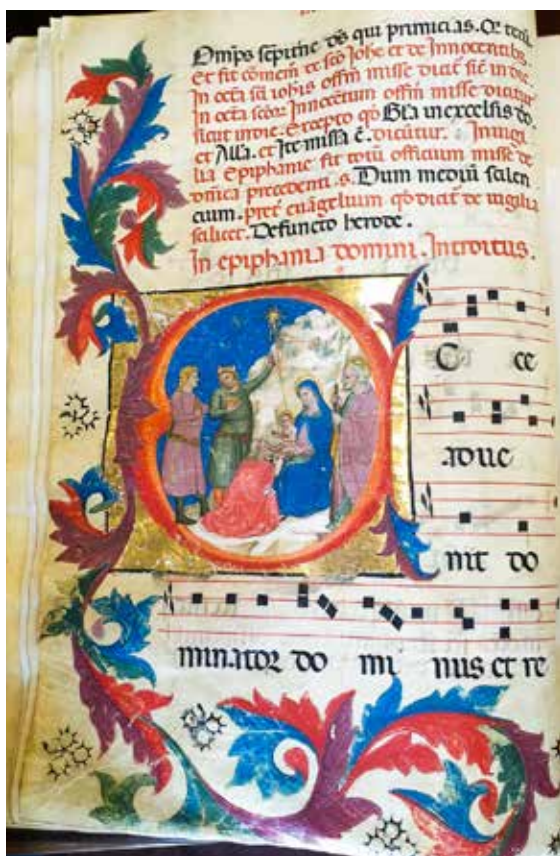 Omps sempitne ds qui primicias. Or
Et fit comem de sco Iohe et de Innocentibs.
In octa sci iohis offm misse dicit sic in die.
In octa scor Innocentum offm misse dicitur
sicut in die. Excepto qd Gla in excelsis do.
et Alla. et Ite missa e. dicutur. In uigi
lia Epiphanie fit totu officium misse de
dnica precedenti .s. Dum mediu silen
cium. preter euagelium qd dicit de uigilia
scilicet. Defuncto herode.
In epiphania domini. Introitus.
E C ce
adue
nit do
minator do mi nus et re